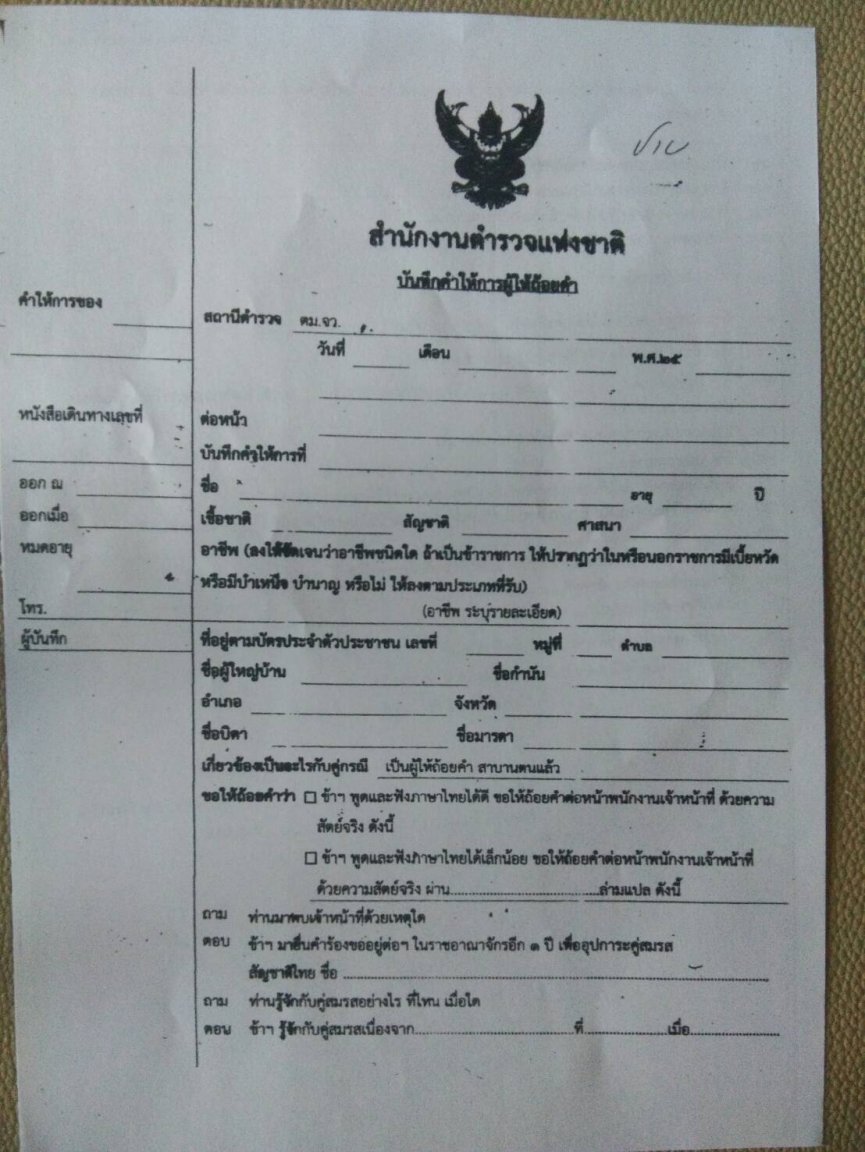 ชาย
สำนักงานตำรวจแห่งชาติ
บันทึกคำให้การผู้ให้ถ้อยคำ
คำให้การของ
สถานีตำรวจ ตม.จว.
วันที่ เดือน พ.ศ.๒๕
หนังสือเดินทางเลขที่
ต่อหน้า
บันทึกคำให้การที่
ออก ณ
ชื่อ อายุ ปี
ออกเมื่อ
เชื้อชาติ สัญชาติ ศาสนา
หมดอายุ
อาชีพ (ลงให้ชัดเจนว่าอาชีพชนิดใด ถ้าเป็นข้าราชการ ให้ปรากฏว่าในหรือนอกราชการมีเบี้ยหวัด
หรือมีบำเหน็จ บำนาญ หรือไม่ ให้ลงตามประเภทที่รับ)
โทร.
(อาชีพ ระบุรายละเอียด)
ผู้บันทึก
ที่อยู่ตามบัตรประจำตัวประชาชน เลขที่ หมู่ที่ ตำบล
ชื่อผู้ใหญ่บ้าน ชื่อกำนัน
อำเภอ จังหวัด
ชื่อบิดา ชื่อมารดา
เกี่ยวข้องเป็นอะไรกับคู่กรณี เป็นผู้ให้ถ้อยคำ สาบานตนแล้ว
ขอให้ถ้อยคำว่า ☐ ข้าฯ พูดและฟังภาษาไทยได้ดี ขอให้ถ้อยคำต่อหน้าพนักงานเจ้าหน้าที่ ด้วยความ
สัตย์จริง ดังนี้
☐ ข้าฯ พูดและฟังภาษาไทยได้เล็กน้อย ขอให้ถ้อยคำต่อหน้าพนักงานเจ้าหน้าที่
ด้วยความสัตย์จริง ผ่าน..............................ล่ามแปล ดังนี้
ถาม ท่านมาพบเจ้าหน้าที่ด้วยเหตุใด
ตอบ ข้าฯ มายื่นคำร้องขออยู่ต่อฯ ในราชอาณาจักรอีก ๑ ปี เพื่ออุปการะคู่สมรส
สัญชาติไทย ชื่อ ............................................................
ถาม ท่านรู้จักกับคู่สมรสอย่างไร ที่ไหน เมื่อใด
ตอบ ข้าฯ รู้จักกับคู่สมรสเนื่องจาก..............................ที่...............เมื่อ...............